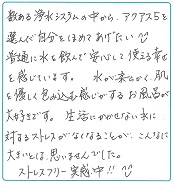 数ある浄水システムの中から、アクアス5を
選んだ自分をほめてあげたい
普通に水を飲んで安心して使える幸せ
を感じています。 水が柔らかく、肌
を優しく包み込む感じがするお風呂が
大好きです。 生活に欠かせない水に
対するストレスがなくなることが、こんなに
大きいとは思いませんでした。
ストレスフリー実感中!!